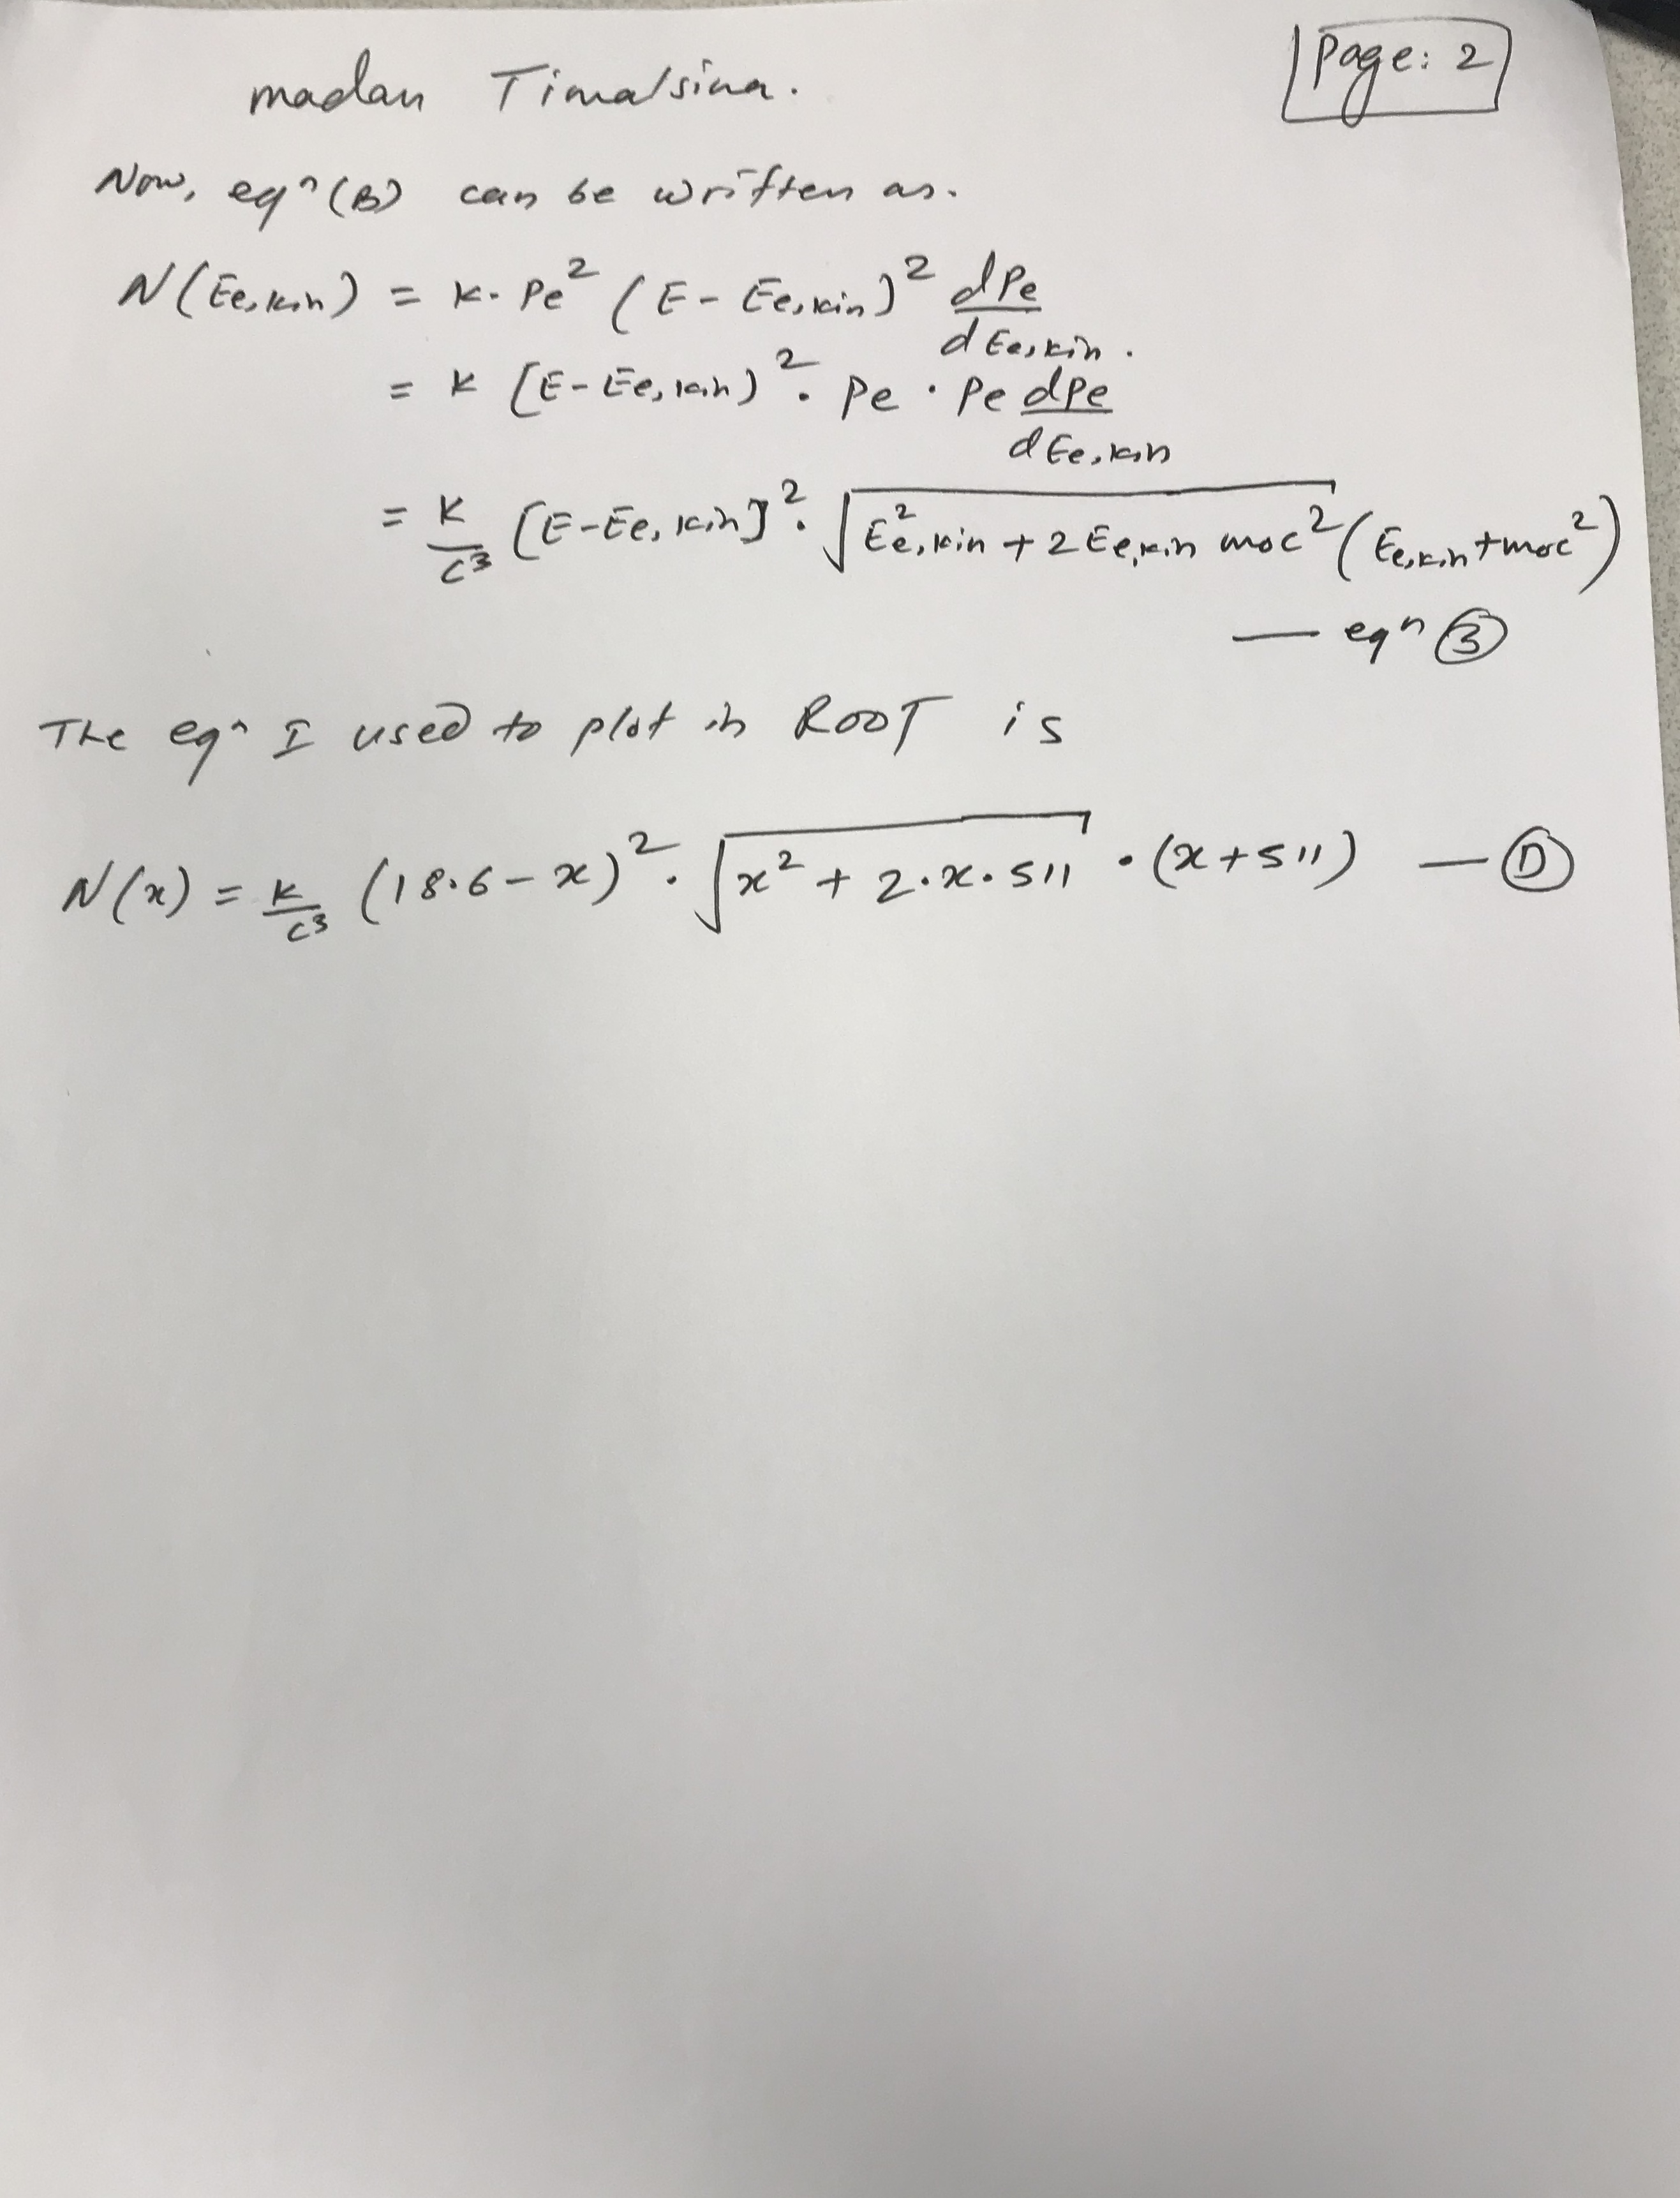 Page: 2
madan Timalsina.
Now, eqⁿ (B) can be written as.
N(Ee,kin) = K. Pe² (E - Ee,kin)² dPe/dEe,kin.
= K [E - Ee,kin)². Pe · Pe dPe/dEe,kin
= K/c³ [E - Ee,kin]². √(E²e,kin + 2Ee,kin moc²) (Ee,kin + moc²)
— eqⁿ ③
The eqⁿ I used to plot in ROOT is
N(x) = K/c³ (18.6 - x)². √(x² + 2.x.511) · (x + 511) — Ⓓ